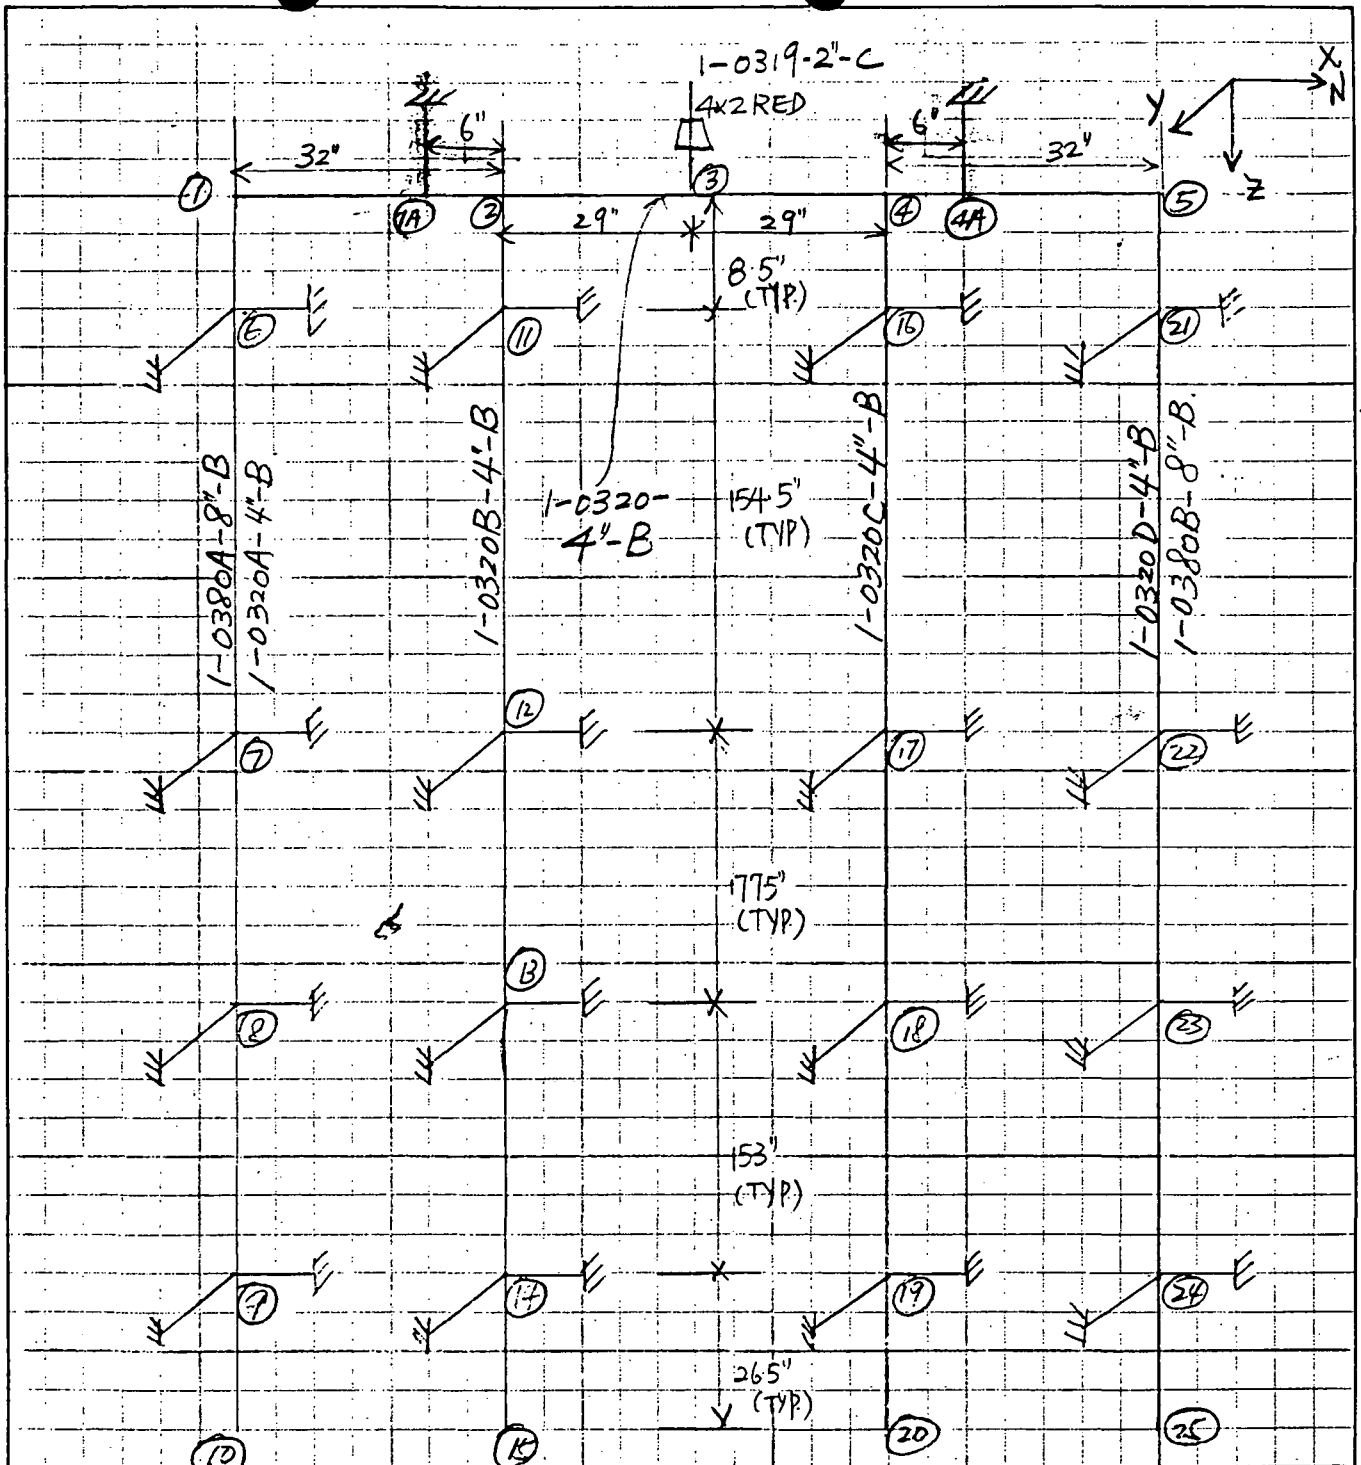 1-0319-2"-C
4x2 RED
X
N
Y
Z
32"
6"
6"
32"
1
1A
2
3
4
4A
5
29"
29"
8.5"
(TYP.)
6
11
16
21
1-0380A-8"-B
1-0320A-4"-B
1-0320B-4"-B
1-0320-
4"-B
154.5"
(TYP)
1-0320C-4"-B
1-0320D-4"-B
1-0380B-8"-B.
7
12
17
22
(TYP.)
8
13
18
23
153"
(TYP.)
9
14
19
24
(TYP.)
10
15
20
25